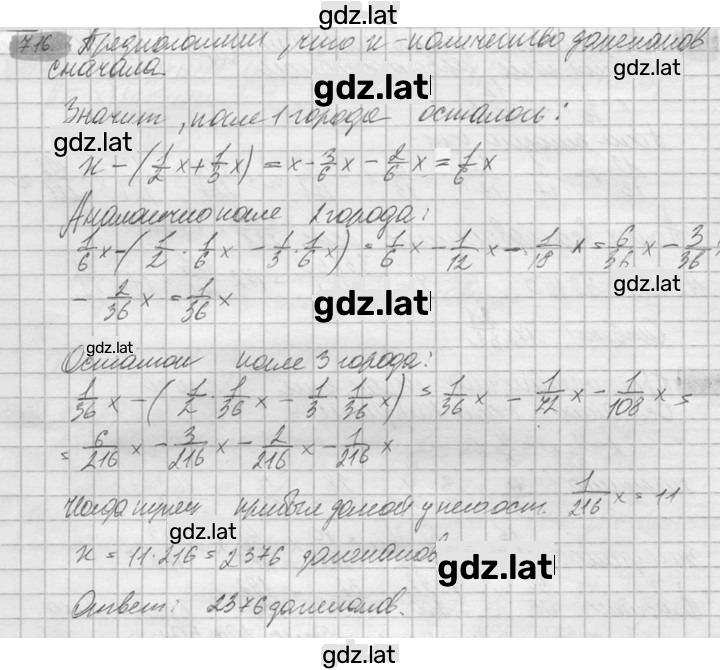 gdz.lat
716. Предположим, что x - количество дапеканов
gdz.lat
сначала.
gdz.lat
Значит, после 1 города осталось:
gdz.lat
x - (1/2 x + 1/3 x) = x - 3/6 x - 2/6 x = 1/6 x
Аналогично после 2 города:
1/6 x - (1/2 · 1/6 x - 1/3 · 1/6 x) = 1/6 x - 1/12 x - 1/18 x = 6/36 x - 3/36
gdz.lat
- 2/36 x = 1/36 x
gdz.lat
gdz.lat
Остаток после 3 города:
1/36 x - (1/2 · 1/36 x - 1/3 · 1/36 x) = 1/36 x - 1/72 x - 1/108 x =
= 6/216 x - 3/216 x - 2/216 x - 1/216 x
Когда купец прибыл домой у него ост. 1/216 x = 11
gdz.lat
x = 11 · 216 = 2376 дапеканов
gdz.lat
Ответ: 2376 дапеканов.
gdz.lat